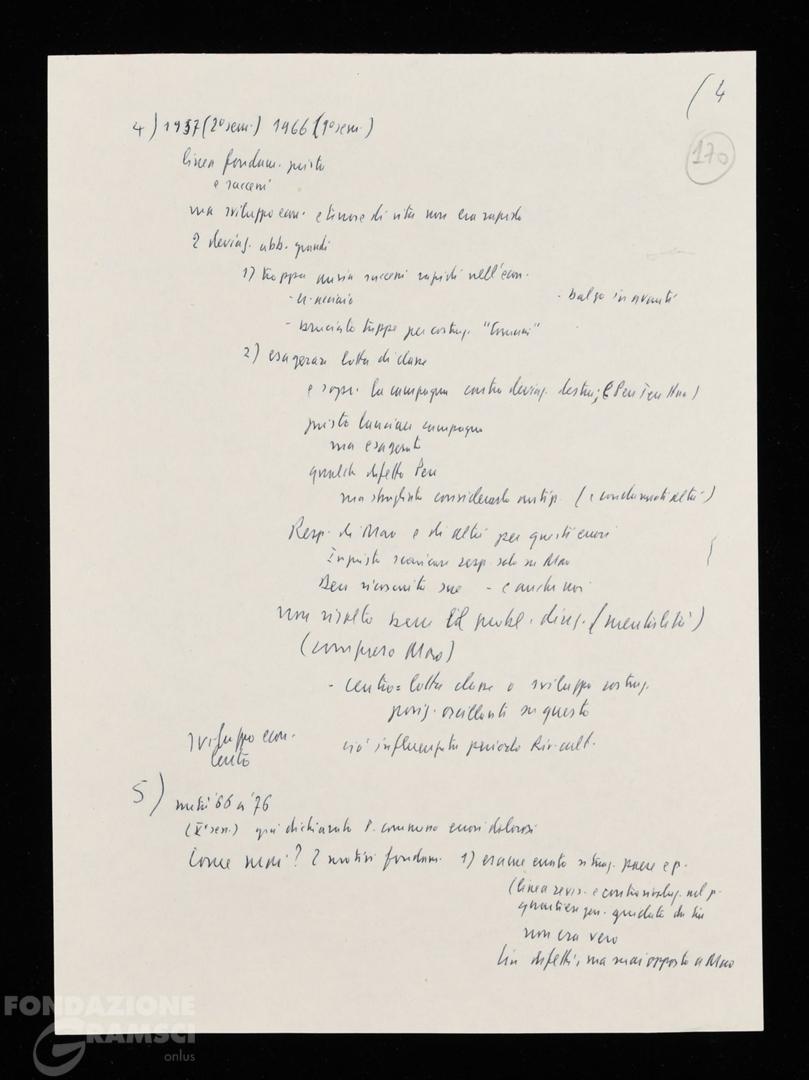 (4
170
4) 1957 (2º sem.) 1966 (1º sem.)
linea fondam. giusta
e successi
ma sviluppo econ. e tenore di vita non era rapido
2 deviaz. abb. grandi
1) troppa ansia successi rapidi nell'econ.
- acciaio - balzo in avanti
- bruciato tappe per costruz. "Comuni"
2) esagerare lotta di classe
e sopr. la campagna contro deviaz. destra; (Pen Teu Hua)
giusto lanciare campagna
ma esagerato
qualche difetto Pen
ma sbagliato considerarlo antip. (e condannati altri)
Resp. di Mao e di altri per questi errori
Ingiusto scaricare resp. solo su Mao
Deu riconosciuto sue - e anche noi
non risolto bene il probl. direz. (mentalità)
(compreso Mao)
- centro = lotta classe o sviluppo costruz.
posiz. oscillanti su questo
sviluppo econ.
lento
ciò influenzata periodo Riv. cult.
5) metà '66 a '76
(XIª sess.) già dichiarato P. commesso errori dolorosi
Come mai? 2 motivi fondam. 1) esame errato situaz. paese e p.
(linea revis. e controrivoluz. nel p.
quartiere gen. guidato da Liu
non era vero
Liu difetti, ma mai opposto a Mao
FONDAZIONE
GRAMSCI
onlus